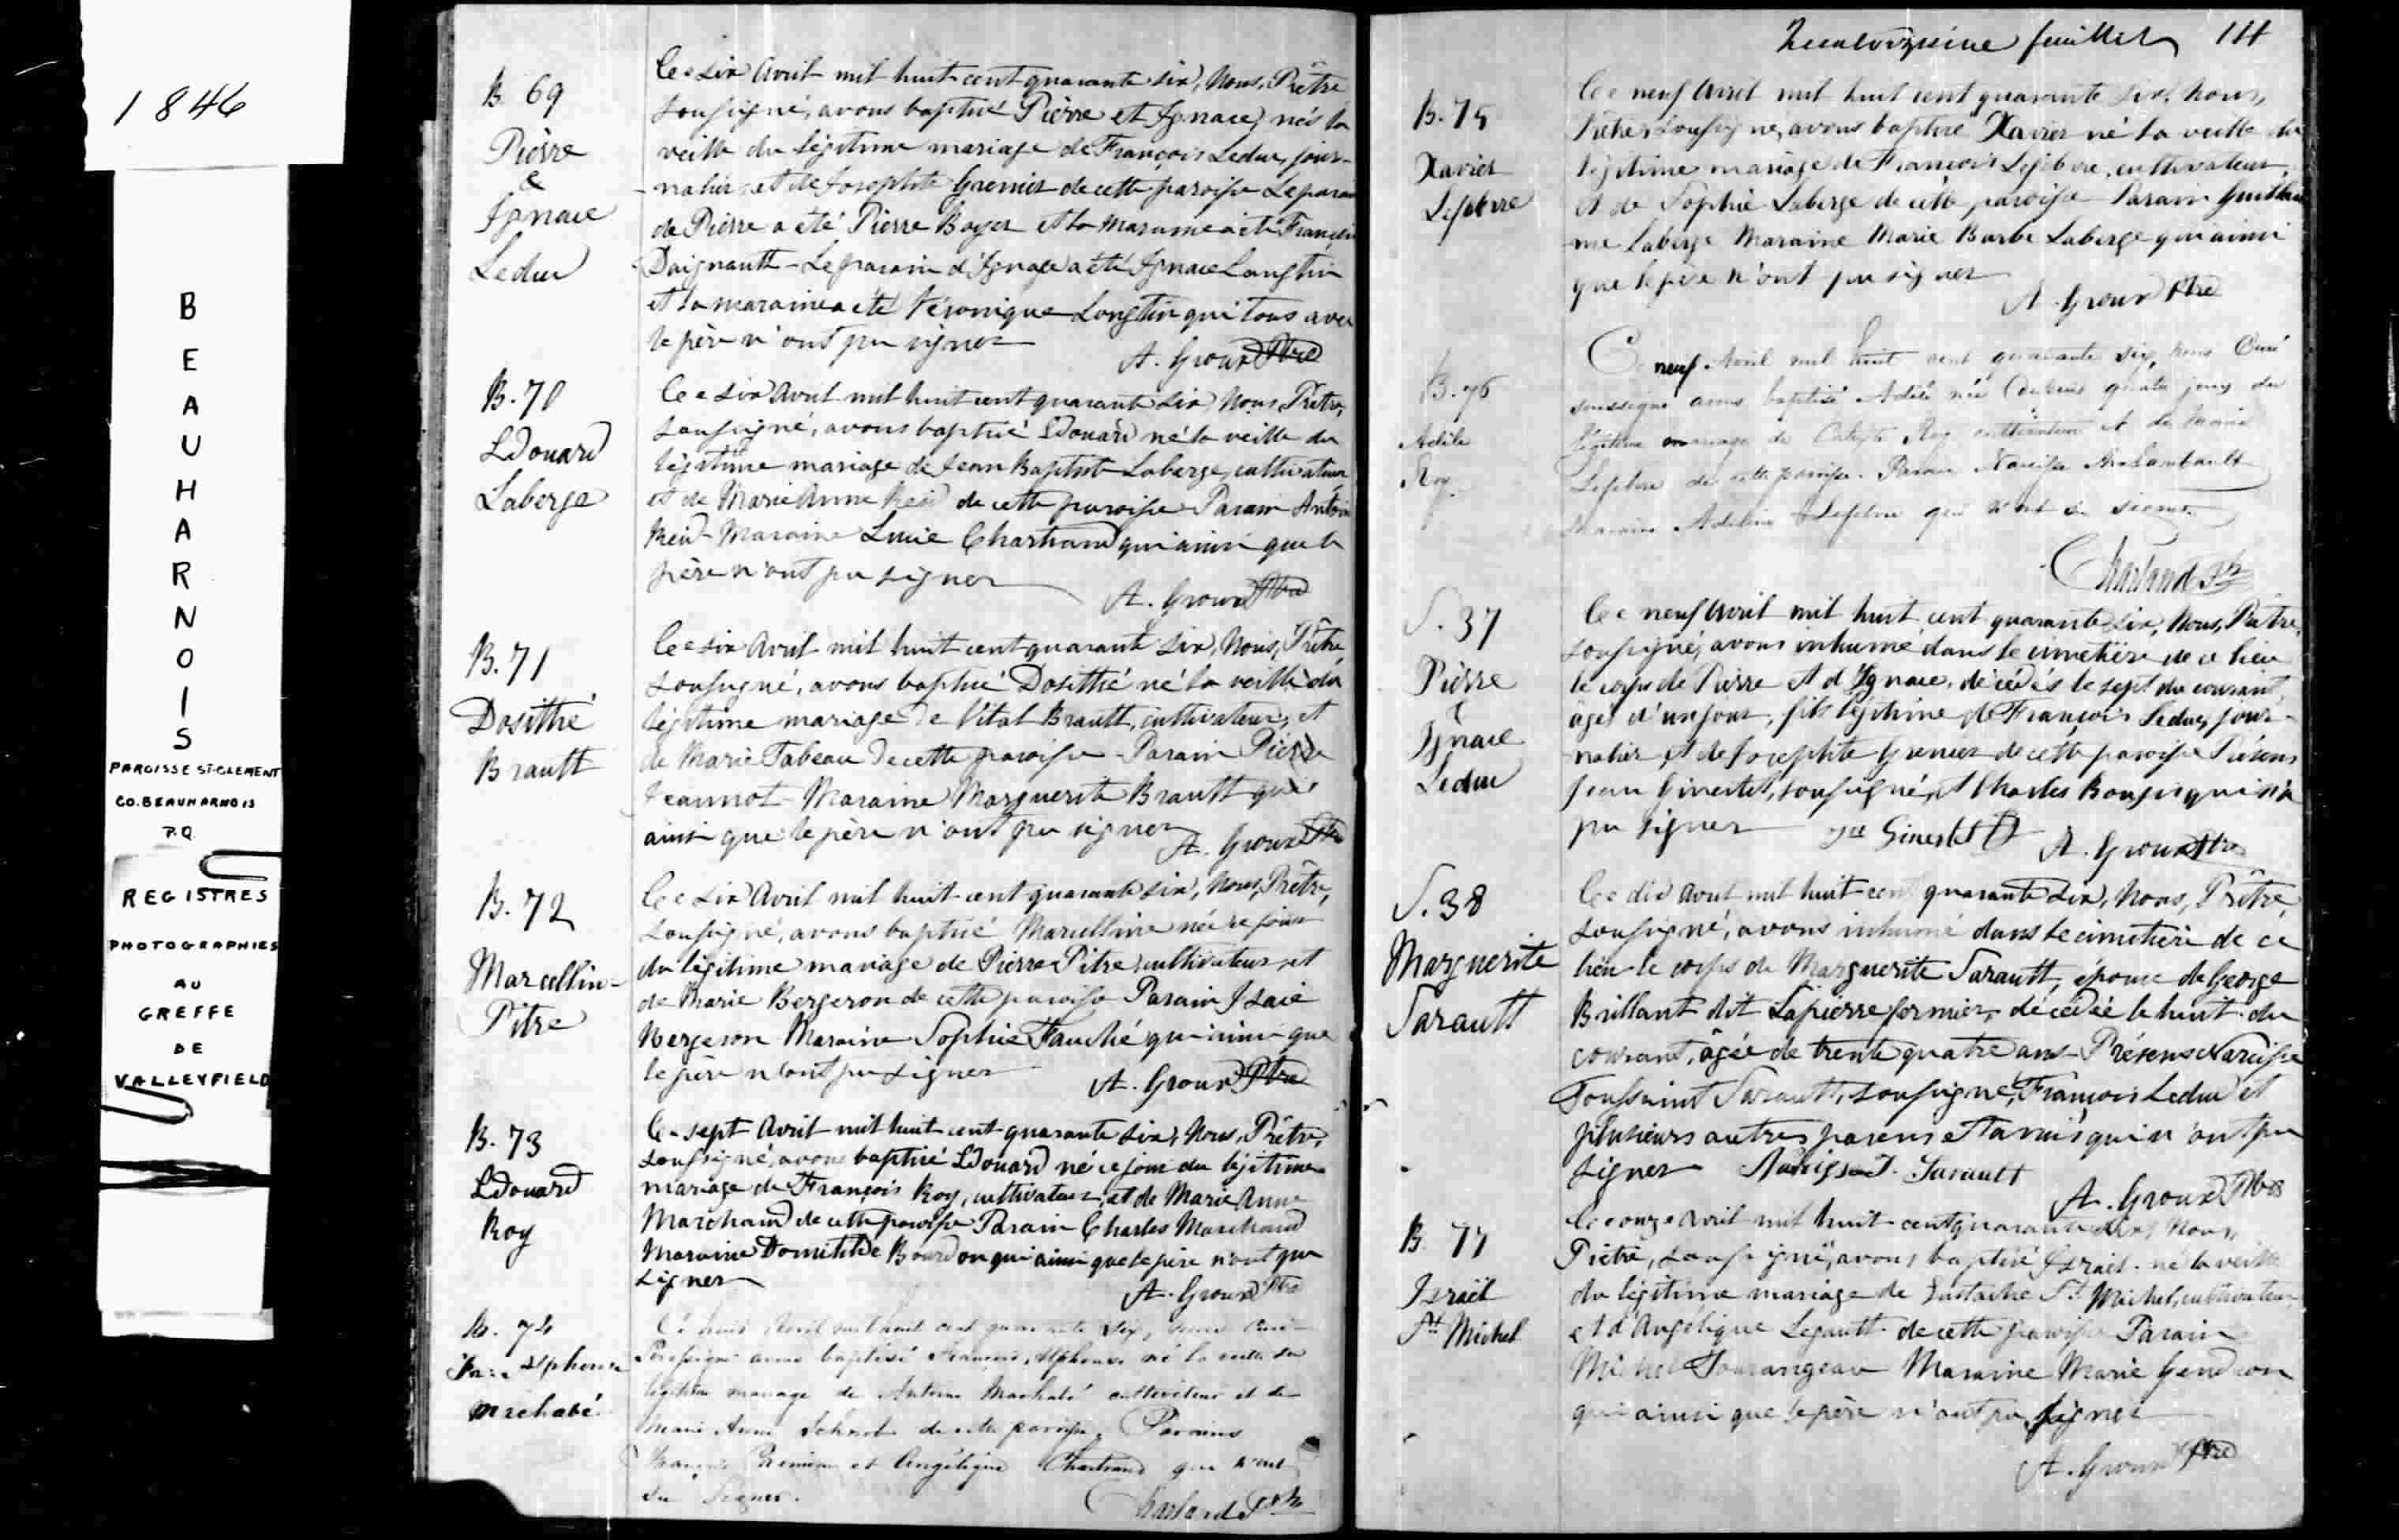 1846
BEAUHARNOIS
PAROISSE ST-CLEMENT
CO. BEAUHARNOIS
P.Q.
REGISTRES
PHOTOGRAPHIES
AU
GREFFE
DE
VALLEYFIELD
B. 69
Pierre
&
Ignace
Leduc
Ce six Avril mil huit cent quarante six, Nous, Prêtre
soussigné, avons baptisé Pierre et Ignace, nés la
veille du légitime mariage de François Leduc, jour-
-nalier et de Josephte Grenier de cette paroisse Le parain
de Pierre a été Pierre Boyer et la maraine a été
Daignault - Le parain d'Ignace a été Ignace Longtin
et la maraine a été Véronique Longtin qui tous avec
le père n'ont pu signer
A. Groux Ptre
B. 70
Edouard
Laberge
Ce six Avril mil huit cent quarante six, Nous, Prêtre,
soussigné, avons baptisé Edouard né la veille du
légitime mariage de Jean Baptiste Laberge, cultivateur
et de Marie Anne Reid de cette paroisse Parain Antoine
Reid Maraine Lucie Chartrand qui ainsi que le
père n'ont pu signer
A. Groux Ptre
B. 71
Dosithé
Brault
Ce six Avril mil huit cent quarante six, Nous, Prêtre
soussigné, avons baptisé Dosithé né la veille du
légitime mariage de Vital Brault, cultivateur, et
de Marie Tabeau de cette paroisse - Parain Pierre
Jeannot - Maraine Marguerite Brault qui
ainsi que le père n'ont pu signer
A. Groux Ptre
B. 72
Marcelline
Pitre
Ce six Avril mil huit cent quarante six, Nous, Prêtre,
soussigné, avons baptisé Marcelline née ce jour
du légitime mariage de Pierre Pitre, cultivateur, et
de Marie Bergeron de cette paroisse Parain Isaie
Bergeron Maraine Sophie Fauché qui ainsi que
le père n'ont pu signer
A. Groux Ptre
B. 73
Edouard
Roy
Ce sept Avril mil huit cent quarante six, Nous, Prêtre,
soussigné, avons baptisé Edouard né ce jour du légitime
mariage de François Roy, cultivateur, et de Marie Anne
Marchand de cette paroisse Parain Charles Marchand
Maraine Domithilde Bourdon qui ainsi que le père n'ont pu
signer
A. Groux Ptre
B. 74
Alphonse
Machabé
Ce huit Avril mil huit cent quarante six, nous curé
soussigné avons baptisé François, Alphonse né la veille du
légitime mariage de Antoine Machabé cultivateur et de
Marie Anne de cette paroisse. Parains
François et Angélique Chartrand qui n'ont
su signer.
Charland Ptre
feuillet 14
B. 75
Xavier
Lefebvre
Ce neuf Avril mil huit cent quarante six, Nous,
Prêtre, soussigné, avons baptisé Xavier né la veille du
légitime mariage de François Lefebvre, cultivateur,
et de Sophie Laberge de cette paroisse Parain Guillau
-me Laberge Maraine Marie Barbe Laberge qui ainsi
que le père n'ont pu signer
A. Groux Ptre
B. 76
Adèle
Roy
Ce neuf Avril mil huit cent quarante six, nous Curé
soussigné avons baptisé Adèle née depuis quatre jours du
légitime mariage de Calixte Roy cultivateur et de Marie
Lefebvre de cette paroisse. Parain Narcisse Archambault
Maraine Adeline Lefebvre qui n'ont su signer
Charland Ptre
S. 37
Pierre
&
Ignace
Leduc
Ce neuf Avril mil huit cent quarante six, Nous, Prêtre,
soussigné, avons inhumé dans le cimetière de ce lieu
le corps de Pierre et d'Ignace, décédés le sept du courant,
agés d'un jour, fils légitime de François Leduc, jour-
-nalier, et de Josephte Grenier de cette paroisse Présens
Jean Ginestet, soussigné, et Charles Bourgis qui n'a
pu signer Jn Ginestet A. Groux Ptre
S. 38
Marguerite
Sarault
Ce dix Avril mil huit cent quarante six, Nous, Prêtre,
soussigné, avons inhumé dans le cimetière de ce
lieu le corps de Marguerite Sarault, épouse de George
Brillant dit Lapierre fermier, décédée le huit du
courant, âgée de trente quatre ans - Présens Narcisse
Toussaint Sarault, soussigné, François Leduc et
plusieurs autres parens et amis qui n'ont pu
signer Narcisse T. Sarault
A. Groux Ptre
B. 77
Israël
St Michel
Ce onze Avril mil huit cent quarante six, Nous,
Prêtre, soussigné, avons baptisé Israël né la veille
du légitime mariage de Eustache St Michel, cultivateur
et d'Angélique Legault de cette paroisse Parain
Michel Tourangeau Maraine Marie Gendron
qui ainsi que le père n'ont pu signer
A. Groux Ptre